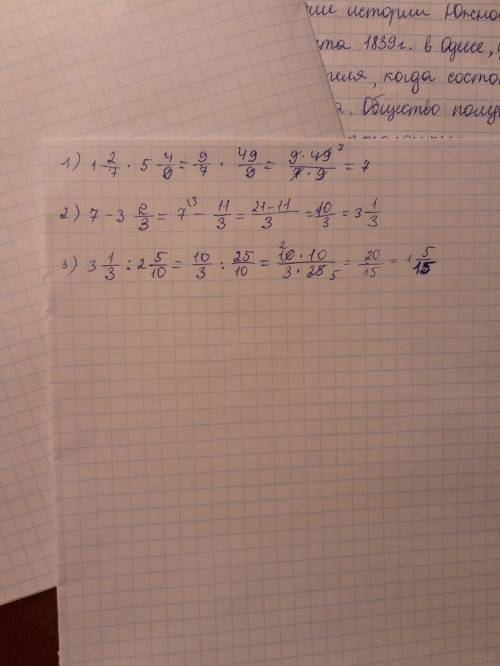 ии истории Южно
та 1839г. в Одессе,
когда состо
Общество полу
1) 1 2/7 · 5 4/9 = 9/7 · 49/9 = 9·49 7/7·9 = 7
2) 7 - 3 2/3 = 7 \3 - 11/3 = 21-11/3 = 10/3 = 3 1/3
3) 3 1/3 : 2 5/10 = 10/3 : 25/10 = 2 10·10/3·25 5 = 20/15 = 1 5/15